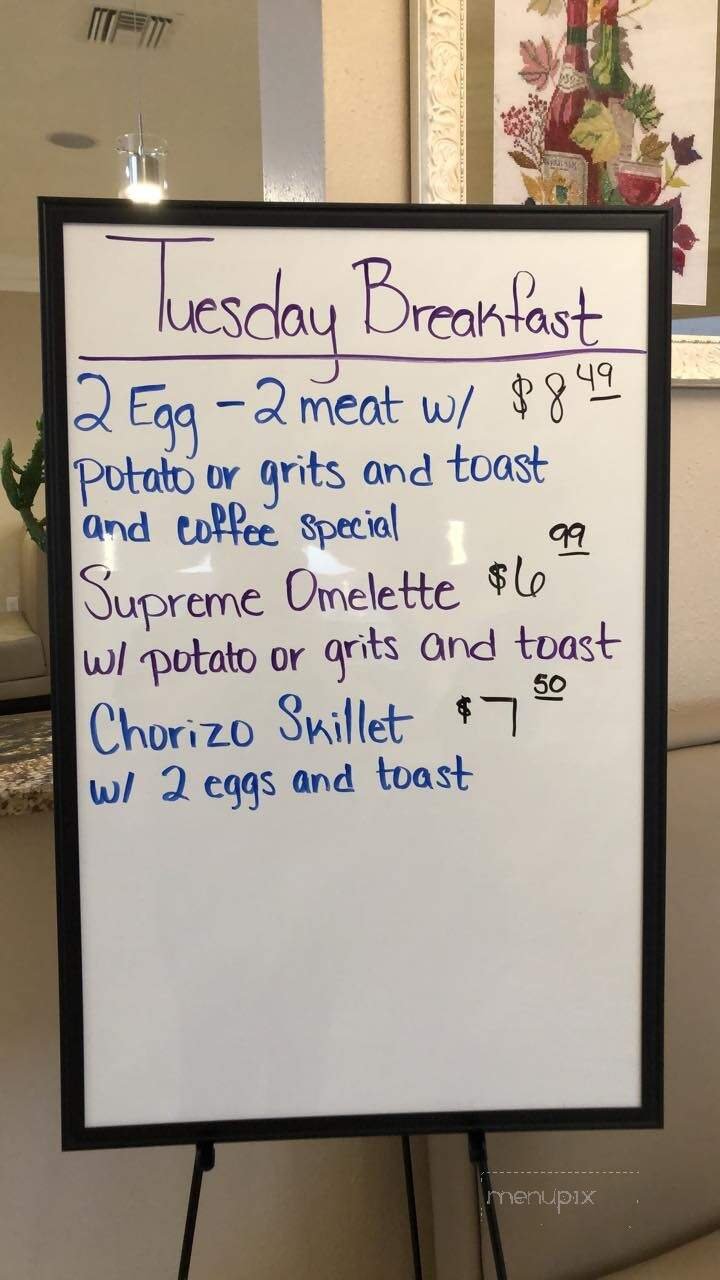 Tuesday Breakfast
2 Egg - 2 meat w/ $8 49
potato or grits and toast
and coffee special
Supreme Omelette $6 99
w/ potato or grits and toast
Chorizo Skillet $7 50
w/ 2 eggs and toast
menupix